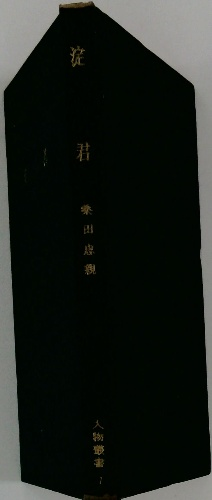 淀君
桑田忠親
人物叢書